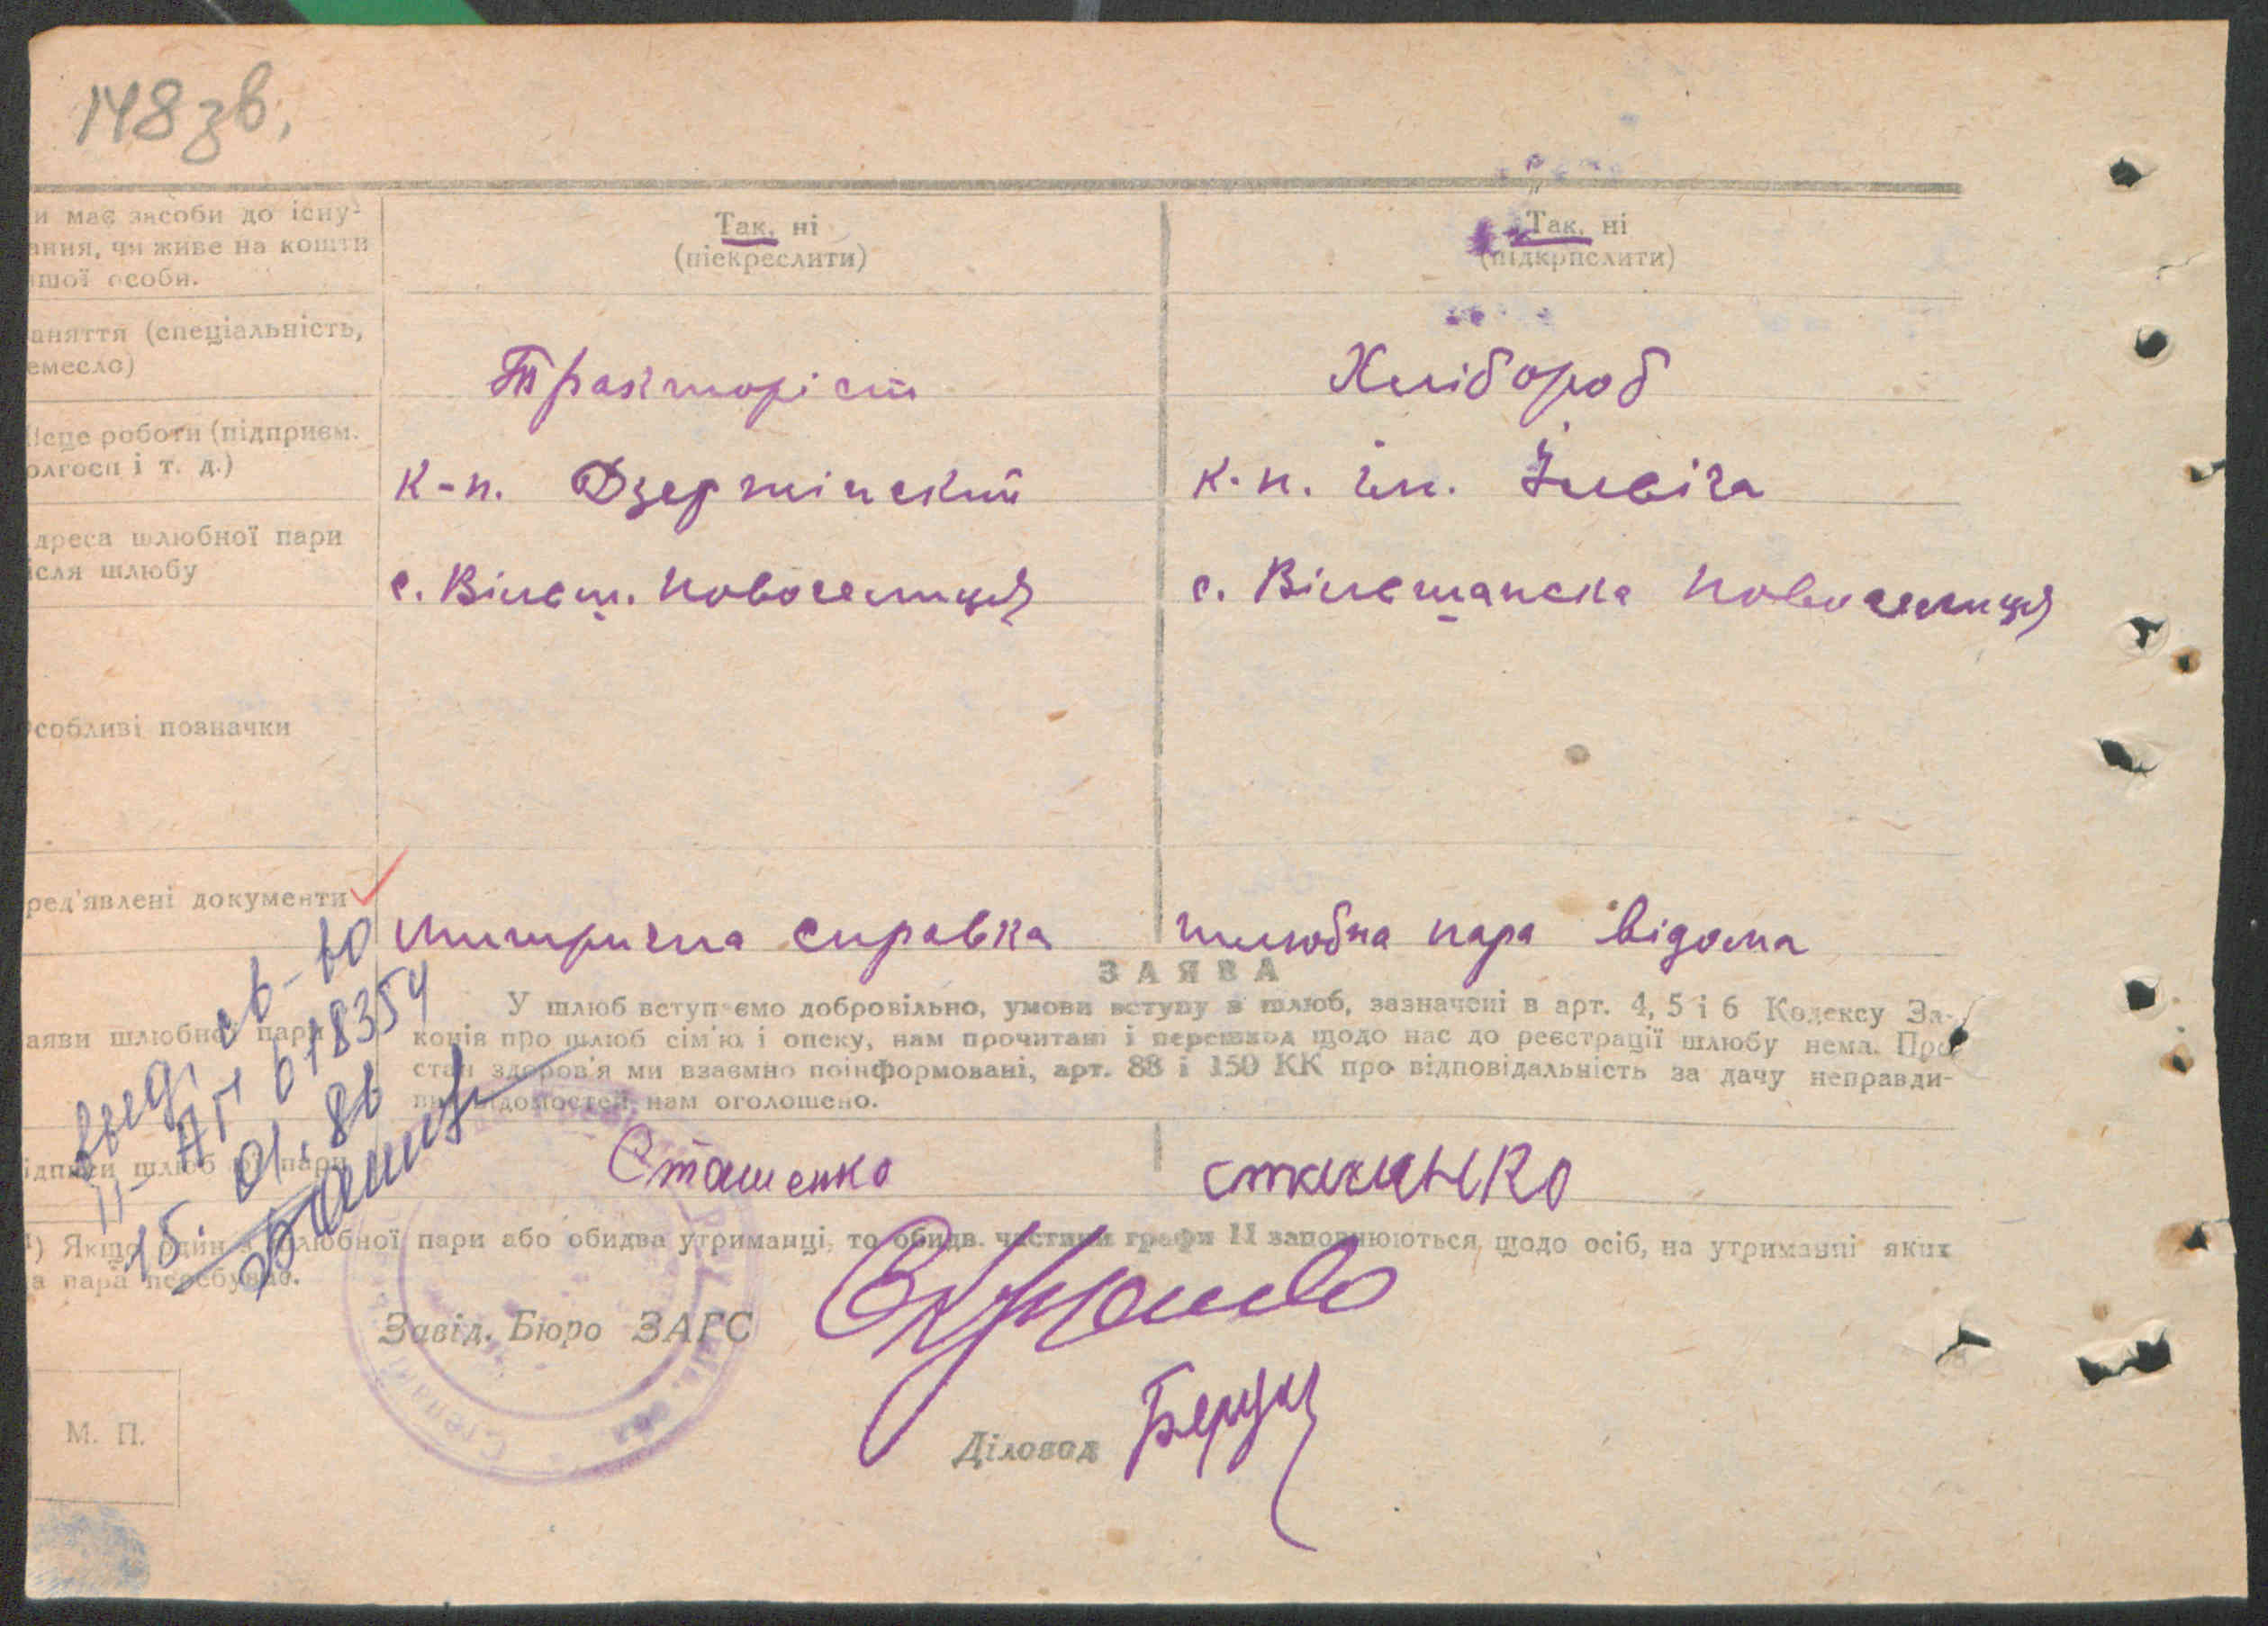 148 зв.
и має засоби до існу-
ання, чи живе на кошти
ншої особи.
Так, ні
(піекреслити)
Так, ні
(підкрпслити)
аняття (спеціальність,
емесло)
Тракторіст
Хлібороб
ісце роботи (підприєм.
олгосп і т. д.)
к-п. Дзержінский
к-п. Ім. Ілвіча
дреса шлюбної пари
ісля шлюбу
с. Вільш. Новоселиця
с. Вільшанска Новоселиця
собливі позначки
ред'явлені документи
митрична справка
шлюбна пара відома
ЗАЯВА
аяви шлюбної пари
У шлюб вступаємо добровільно, умови вступу в шлюб, зазначені в арт. 4, 5 і 6 Кодексу За-
конів про шлюб сім'ю і опеку, нам прочитані і перешкод щодо нас до реєстрації шлюбу нема. Про
стан здоров'я ми взаємно поінформовані, арт. 88 і 150 КК про відповідальність за дачу неправди-
вих відомостей нам оголошено.
выд. св-во
II-АГ 618354
15.01.86
ідписи шлюбної пари
Сташенко
сташенко
¹) Якщо один з шлюбної пари або обидва утриманці, то обидв. частини графи 11 заповнюються щодо осіб, на утриманні яких
а пара перебуває.
Завід. Бюро ЗАГС
Діловод
М. П.